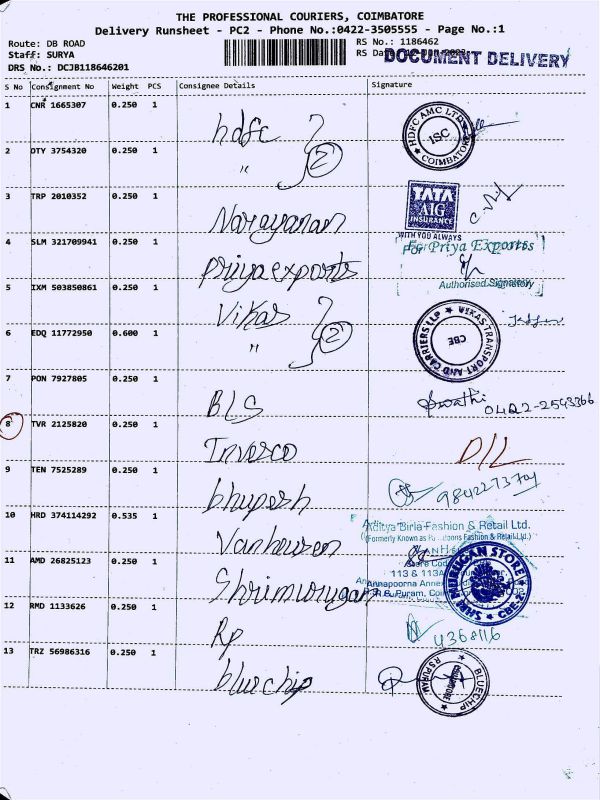 THE PROFESSIONAL COURIERS, COIMBATORE
Delivery Runsheet - PC2 - Phone No.:0422-3505555 - Page No.:1
Route: DB ROAD
Staff: SURYA
DRS No.: DCJB118646201
RS No.: 1186462
RS Da
DOCUMENT DELIVERY
S No Consignment No Weight PCS Consignee Details Signature
1 CNR 1665307 0.250 1 hdfc
HDFC AMC LTD ISC COIMBATORE
2 DTY 3754320 0.250 1 " 2
3 TRP 2010352 0.250 1 Narayanan
TATA
AIG
INSURANCE
WITH YOU ALWAYS
4 SLM 321709941 0.250 1 Priya exports
For Priya Exports
Authorised Signatory
5 IXM 503850861 0.250 1 Vikas
VIKAS TRANSPORT AND CARRIERS LLP CBE
6 EDQ 11772950 0.600 1 " 2
7 PON 7927805 0.250 1 BLS
Swathi 0422-2543366
8 TVR 2125820 0.250 1 Invesco D/L
9 TEN 7525289 0.250 1 bhupesh
10 HRD 374114292 0.535 1 Vanheusen
Aditya Birla Fashion & Retail Ltd.
(Formerly Known as Fashions & Retail Ltd.)
113 & 113A
Annapoorna Annex
R.S. Puram,
11 AMD 26825123 0.250 1 Shrimurugan
SHRI MURUGAN STORE CBE-2
12 RMD 1133626 0.250 1 Rp
4368116
13 TRZ 56986316 0.250 1 bluechip
BLUECHIP R.S PURAM